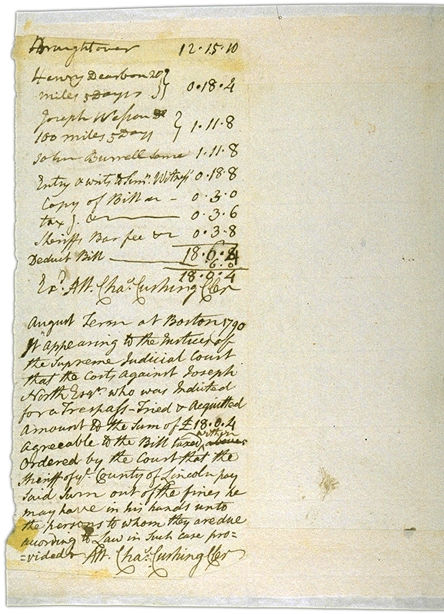 Draught over 12.15.10
Henry Dearbon 20
miles 5 Days } 0.18.4
Joseph Wesson
100 miles 5 Day } 1.11.8
John Burrell Same 1.11.8
Entry & writs to Sumn. Witness 0.18.8
Copy of Bill &c - 0.3.0
tax g. &c 0.3.6
Sheriffs Bar fee &c 0.3.8
18.6.4
Deduct Bill 6.0
18.0.4
Exd. Att. Chas. Cushing Cler
August Term at Boston 1790
It appearing to the Justices of
the Supreme Judicial Court
that the Costs against Joseph
North Esqr. who was Indicted
for a Trespass - Tried & Acquitted
amount to the Sum of £18.0.4
Agreeable to the Bill taxed within
Ordered by the Court that the
Sheriff of ye. County of Lincoln pay
said Sum out of the fines he
may have in his hands unto
the persons to whom they are due
according to Law in Such case pro=
=vided Att. Chas. Cushing Cler